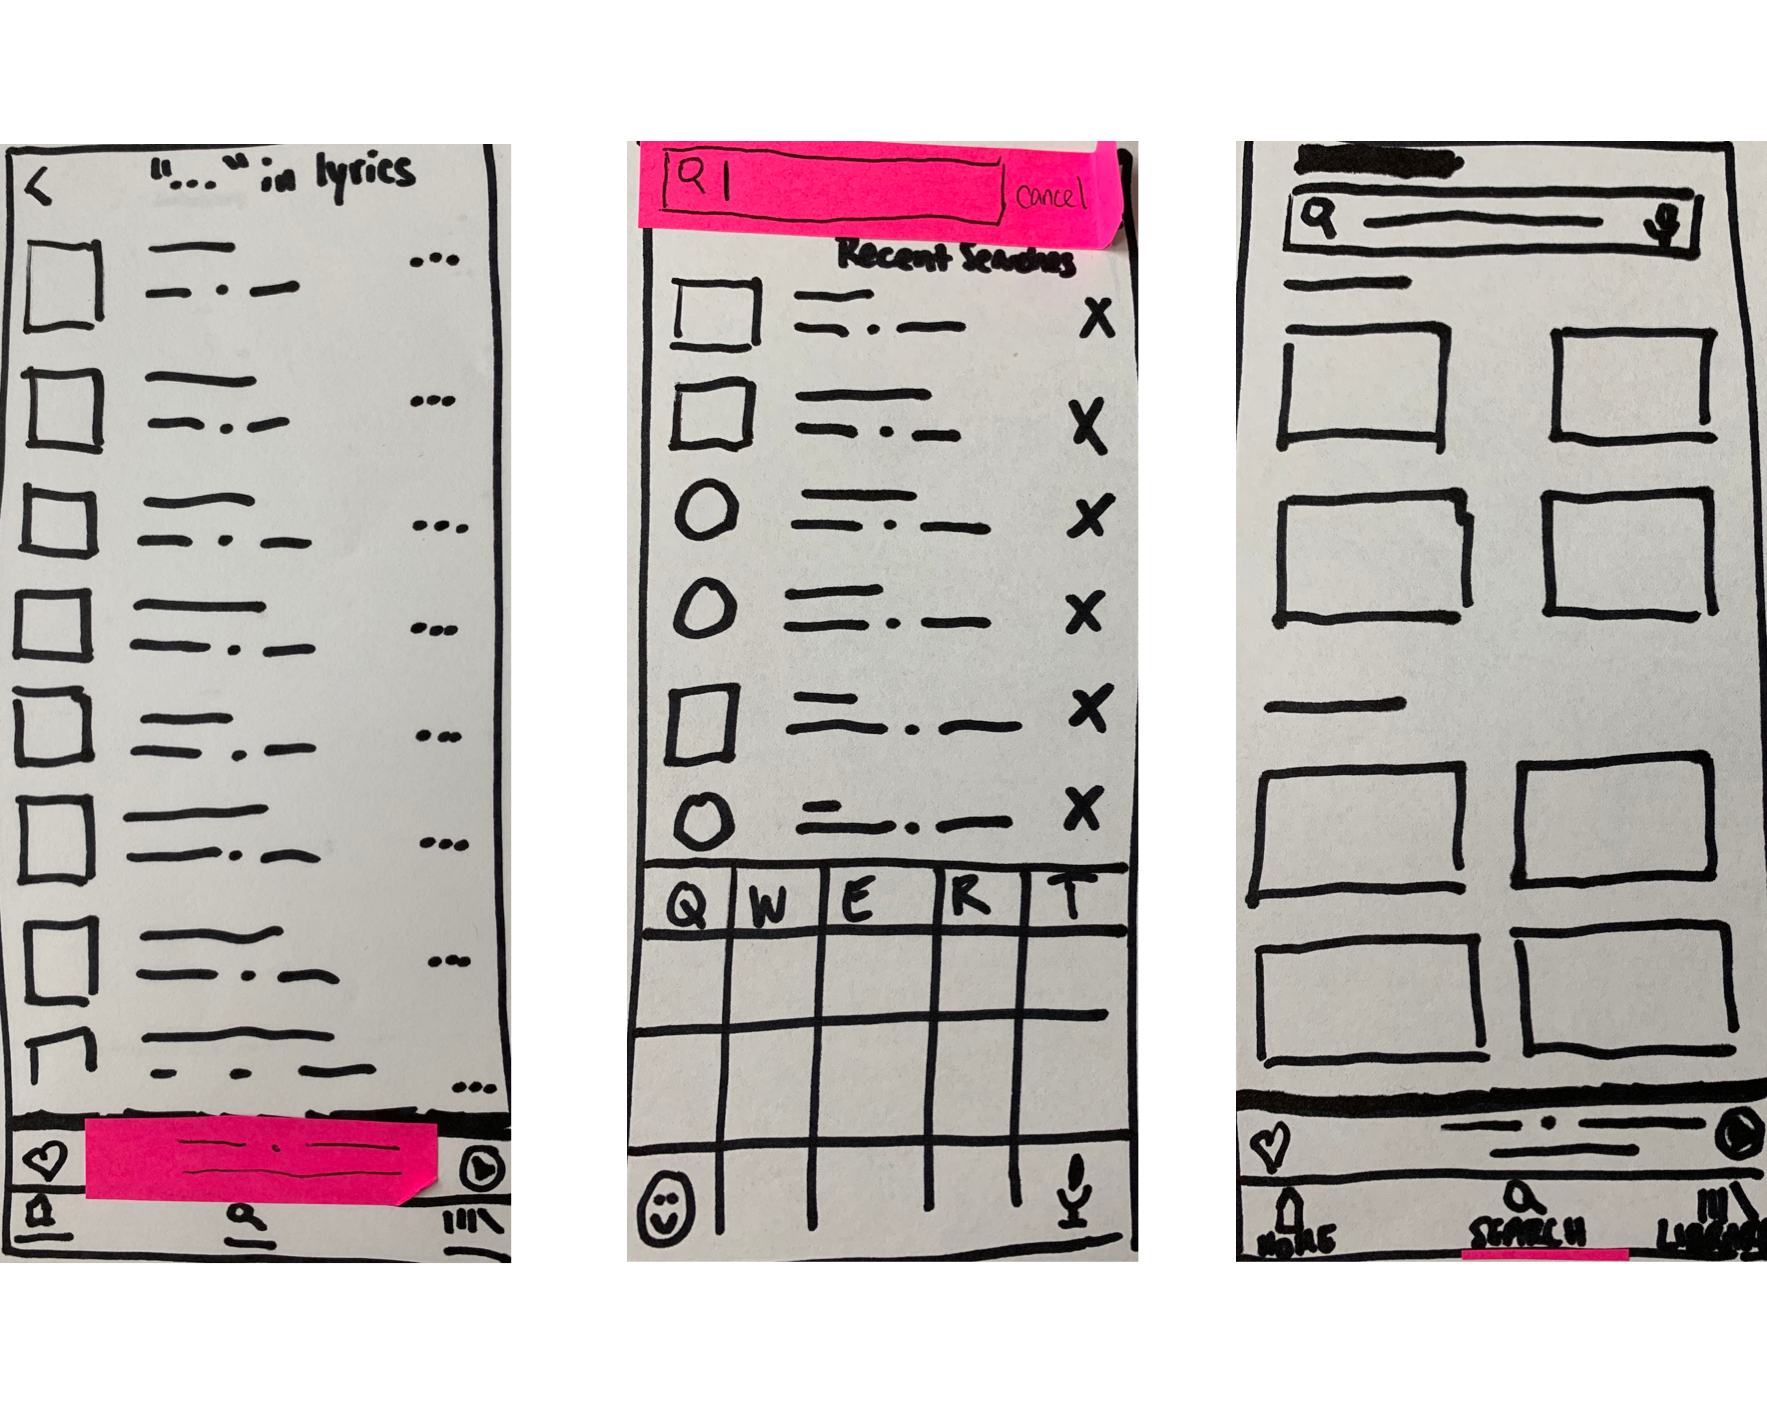 "..." in lyrics
cancel
Recent Searches
Q W E R T
HOME SEARCH LIBRARY